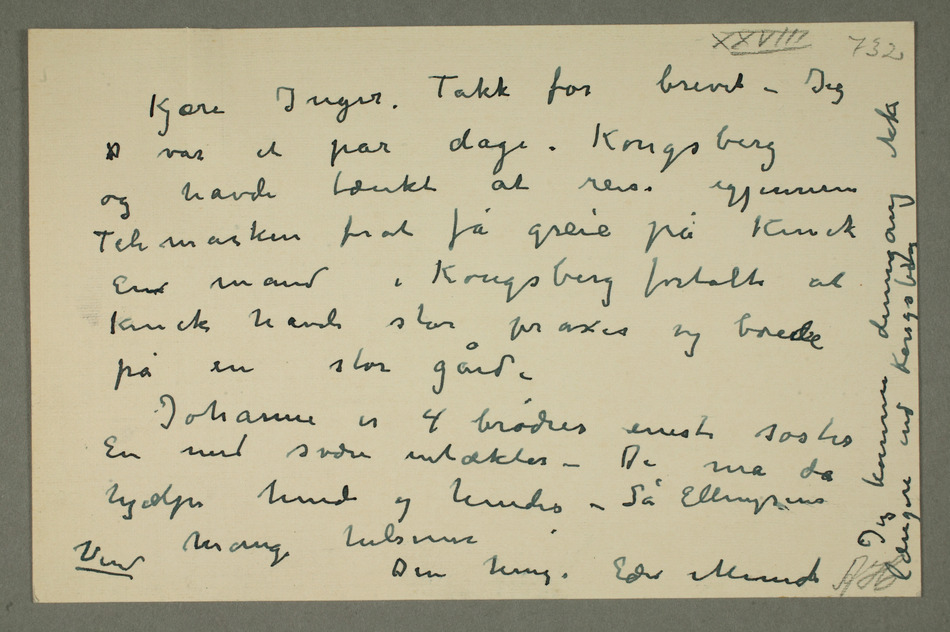 XXVIII 732
Kjære Inger. Takk for brevet – Jeg
var et par dage i Kongsberg
og havde tænkt at reise igjennem
Telemarken forat få greie på Kinck
En mand i Kongsberg fortalte at
Kinck havde stor praxis og boede
på en stor gård.
Johanne er 4 brødres eneste søster
En med svære indtækter – De må da
hjælpe hende og hendes – Så Ellingsens
Mange hilsener
Vend
Din heng. Edv Munch
Jeg kommer denne gang ikke
længere end Kongsberg